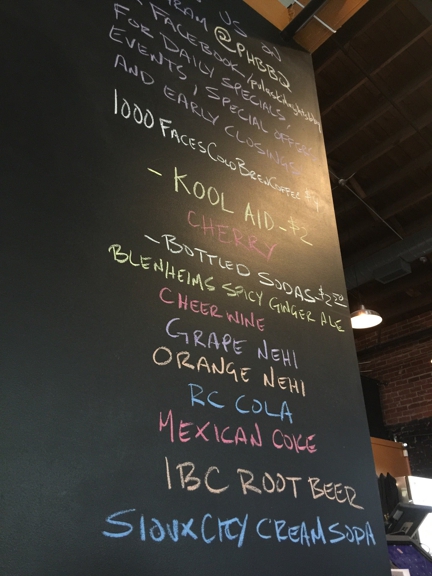 US ON
@PHBBQ
FACEBOOK/
FOR DAILY SPECIALS,
EVENTS, SPECIAL OFFERS
AND EARLY CLOSINGS
1000 FACES COLD BREW COFFEE $4
- KOOL AID - $2
CHERRY
- BOTTLED SODAS - $2.50
BLENHEIMS SPICY GINGER ALE
CHEERWINE
GRAPE NEHI
ORANGE NEHI
RC COLA
MEXICAN COKE
IBC ROOT BEER
SIOUX CITY CREAM SODA